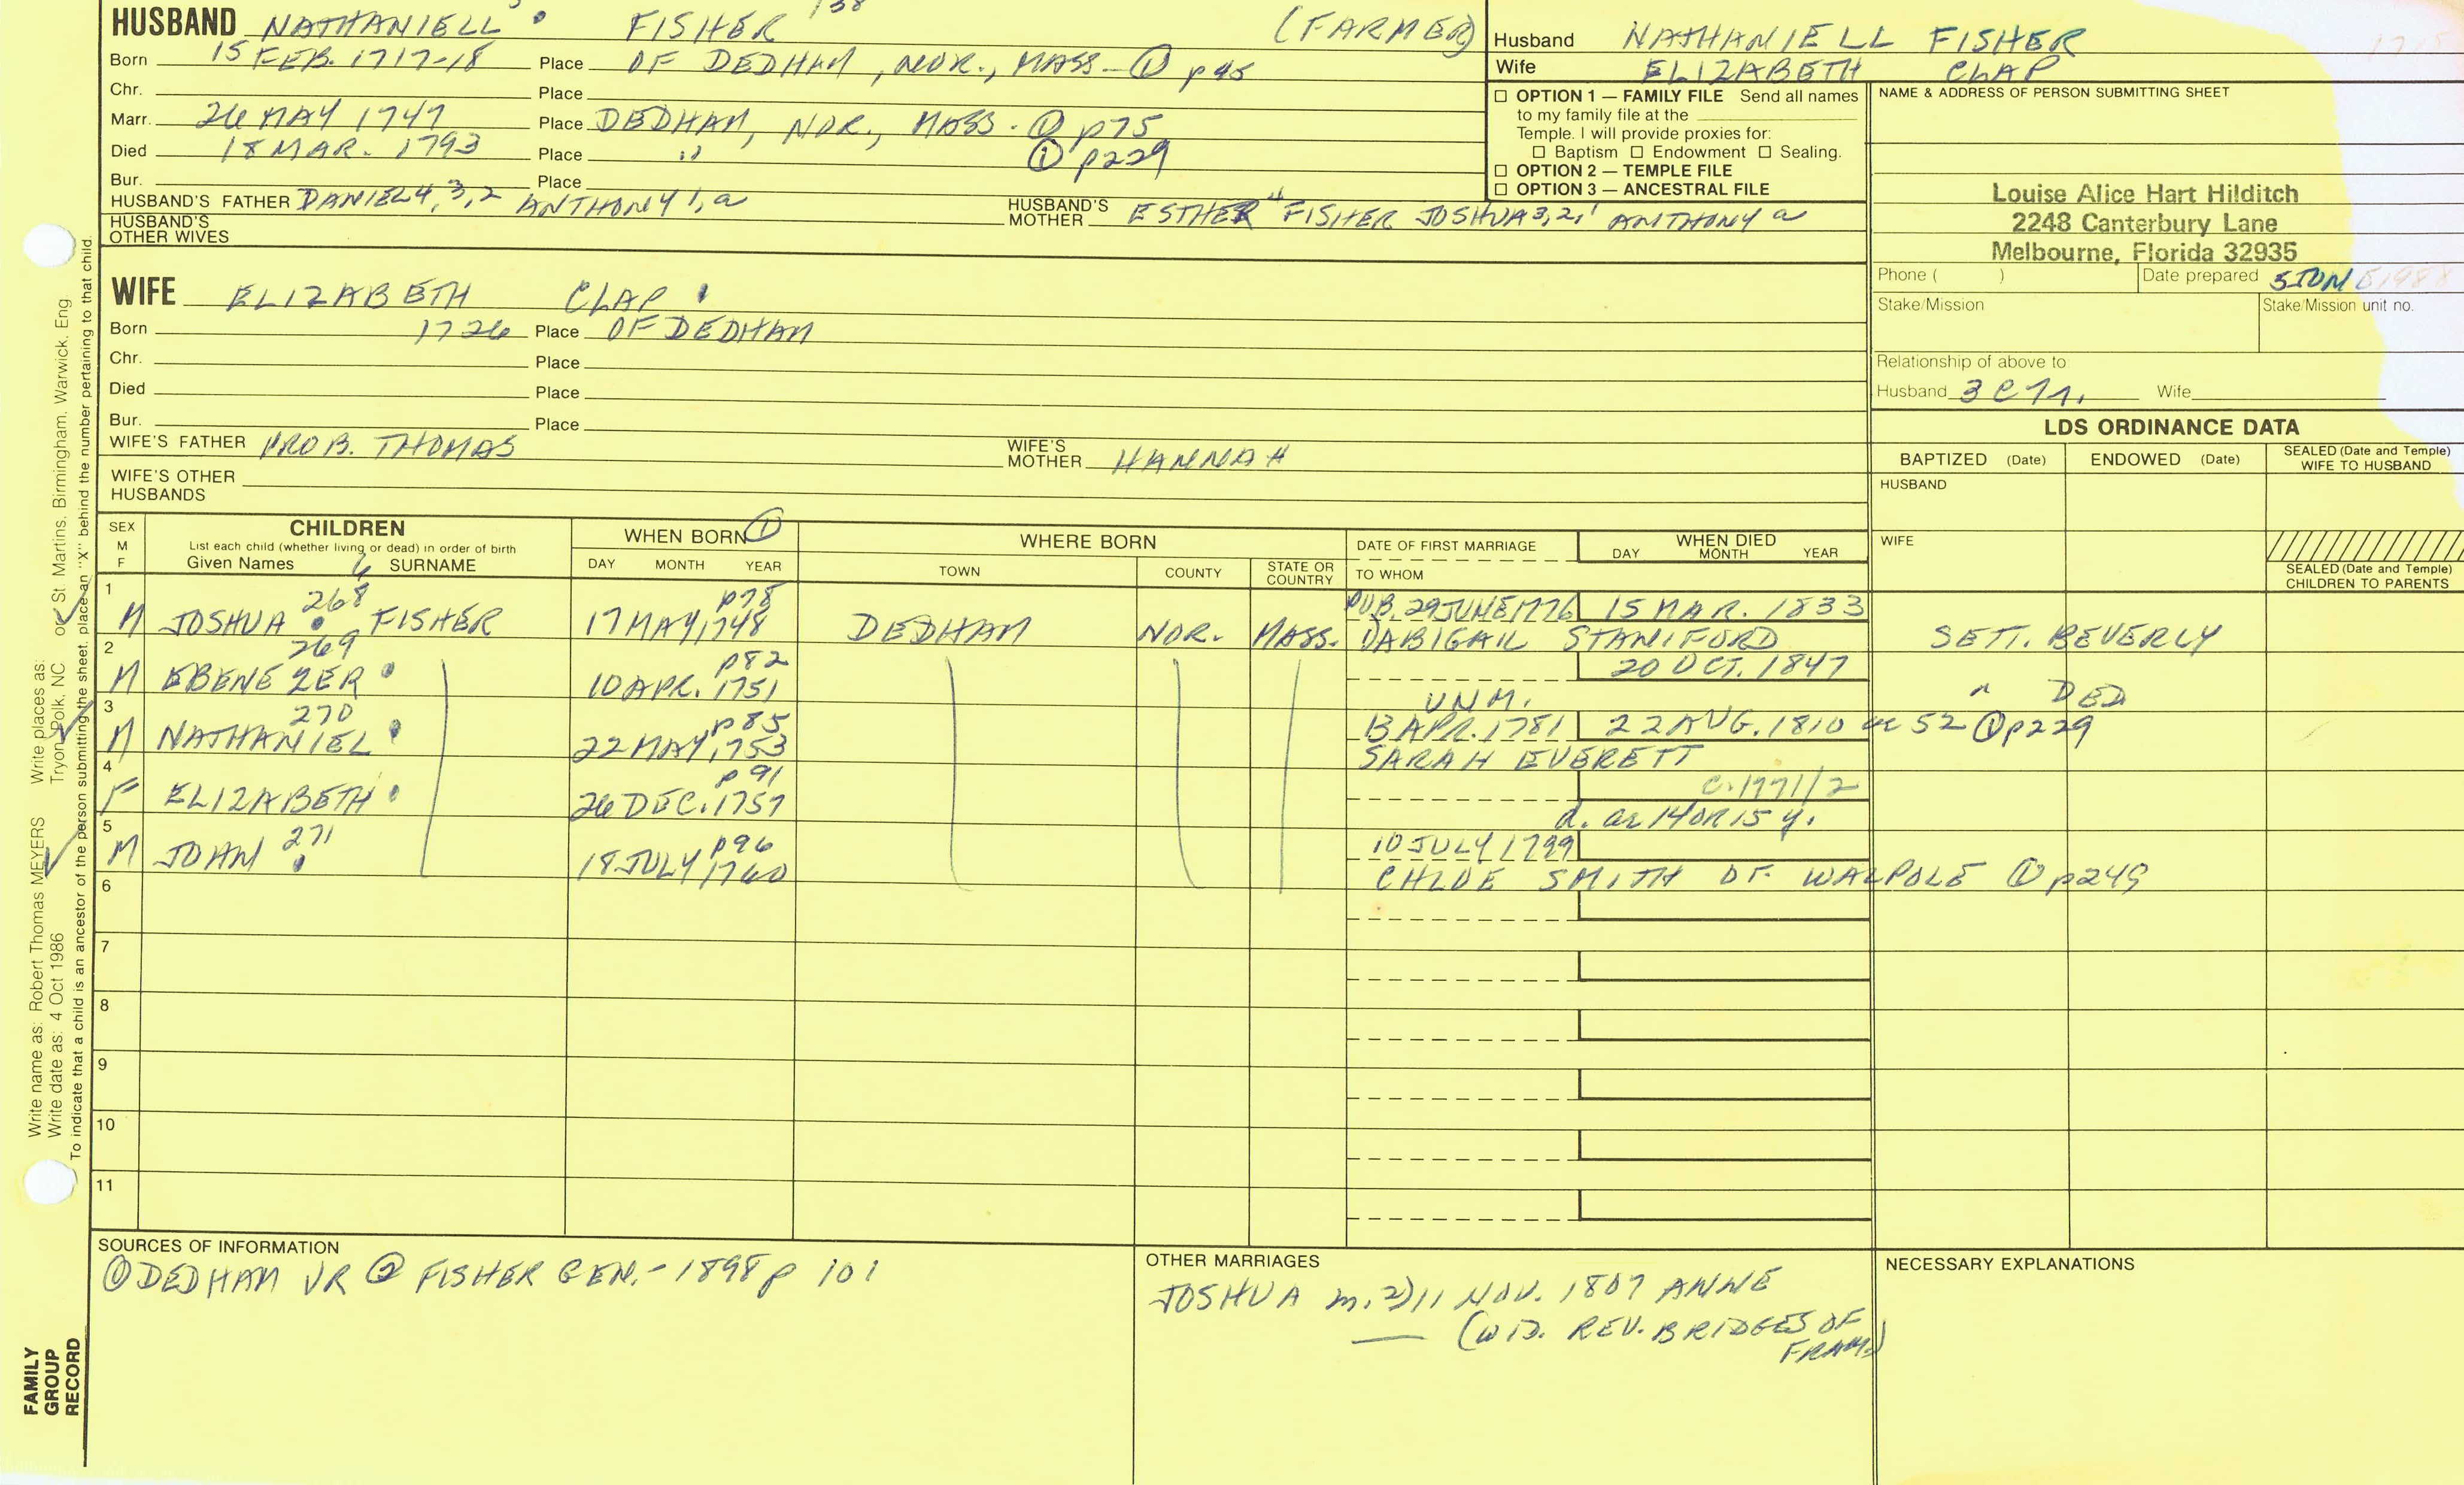 HUSBAND NATHANIELL 5 FISHER 138 (FARMER)
Born 15 FEB. 1717-18 Place OF DEDHAM, NOR., MASS. ① p45
Chr. Place
Marr. 26 MAY 1747 Place DEDHAM, NOR., MASS. ① p75
Died 18 MAR. 1793 Place " ① p229
Bur. Place
HUSBAND'S FATHER DANIEL 4,3,2 ANTHONY 1,a HUSBAND'S MOTHER ESTHER 4 FISHER JOSHUA 3,2,1 ANTHONY a
HUSBAND'S OTHER WIVES
Husband NATHANIELL FISHER
Wife ELIZABETH CLAP
☐ OPTION 1 — FAMILY FILE Send all names
to my family file at the
Temple. I will provide proxies for:
☐ Baptism ☐ Endowment ☐ Sealing.
☐ OPTION 2 — TEMPLE FILE
☐ OPTION 3 — ANCESTRAL FILE
NAME & ADDRESS OF PERSON SUBMITTING SHEET
Louise Alice Hart Hilditch
2248 Canterbury Lane
Melbourne, Florida 32935
Phone ( ) Date prepared 5 JUNE 1988
Stake/Mission Stake/Mission unit no.
Relationship of above to:
Husband Wife
WIFE ELIZABETH CLAP
Born 1726 Place OF DEDHAM
Chr. Place
Died Place
Bur. Place
WIFE'S FATHER PROB. THOMAS WIFE'S MOTHER HANNAH
WIFE'S OTHER HUSBANDS
LDS ORDINANCE DATA
BAPTIZED (Date) ENDOWED (Date) SEALED (Date and Temple) WIFE TO HUSBAND
HUSBAND
WIFE
SEALED (Date and Temple) CHILDREN TO PARENTS
SEX M F CHILDREN List each child (whether living or dead) in order of birth Given Names SURNAME
WHEN BORN ① DAY MONTH YEAR
WHERE BORN TOWN COUNTY STATE OR COUNTRY
DATE OF FIRST MARRIAGE TO WHOM
WHEN DIED DAY MONTH YEAR
1 M JOSHUA 268 FISHER 17 MAY, 1748 p78 DEDHAM NOR. MASS. PUB. 29 JUNE 1776 15 MAR. 1833
ABIGAIL STANIFORD SETT. BEVERLY
2 M EBENEZER 269 10 APR. 1751 p82 20 OCT. 1847
UNM. " DED
3 M NATHANIEL 270 22 MAY, 1753 p85 13 APR. 1781 22 AUG. 1810 ae 52 ① p229
SARAH EVERETT
4 F ELIZABETH 26 DEC. 1757 p91 c. 1771/2
d. ae 14 OR 15 y.
5 M JOHN 271 18 JULY 1760 p96 10 JULY 1799
CHLOE SMITH OF WALPOLE ① p249
6
7
8
9
10
11
SOURCES OF INFORMATION
① DEDHAM VR ② FISHER GEN. - 1898 p 101
OTHER MARRIAGES
JOSHUA m. 2) 11 NOV. 1807 ANNE
— (WID. REV. BRIDGES OF
FRAM.)
NECESSARY EXPLANATIONS
Write name as: Robert Thomas MEYERS Write places as: or St Martins, Birmingham, Warwick, Eng
Write date as: 4 Oct 1986 Tryon, Polk, NC
To indicate that a child is an ancestor of the person submitting the sheet, place an "X" behind the number pertaining to that child.
FAMILY
GROUP
RECORD